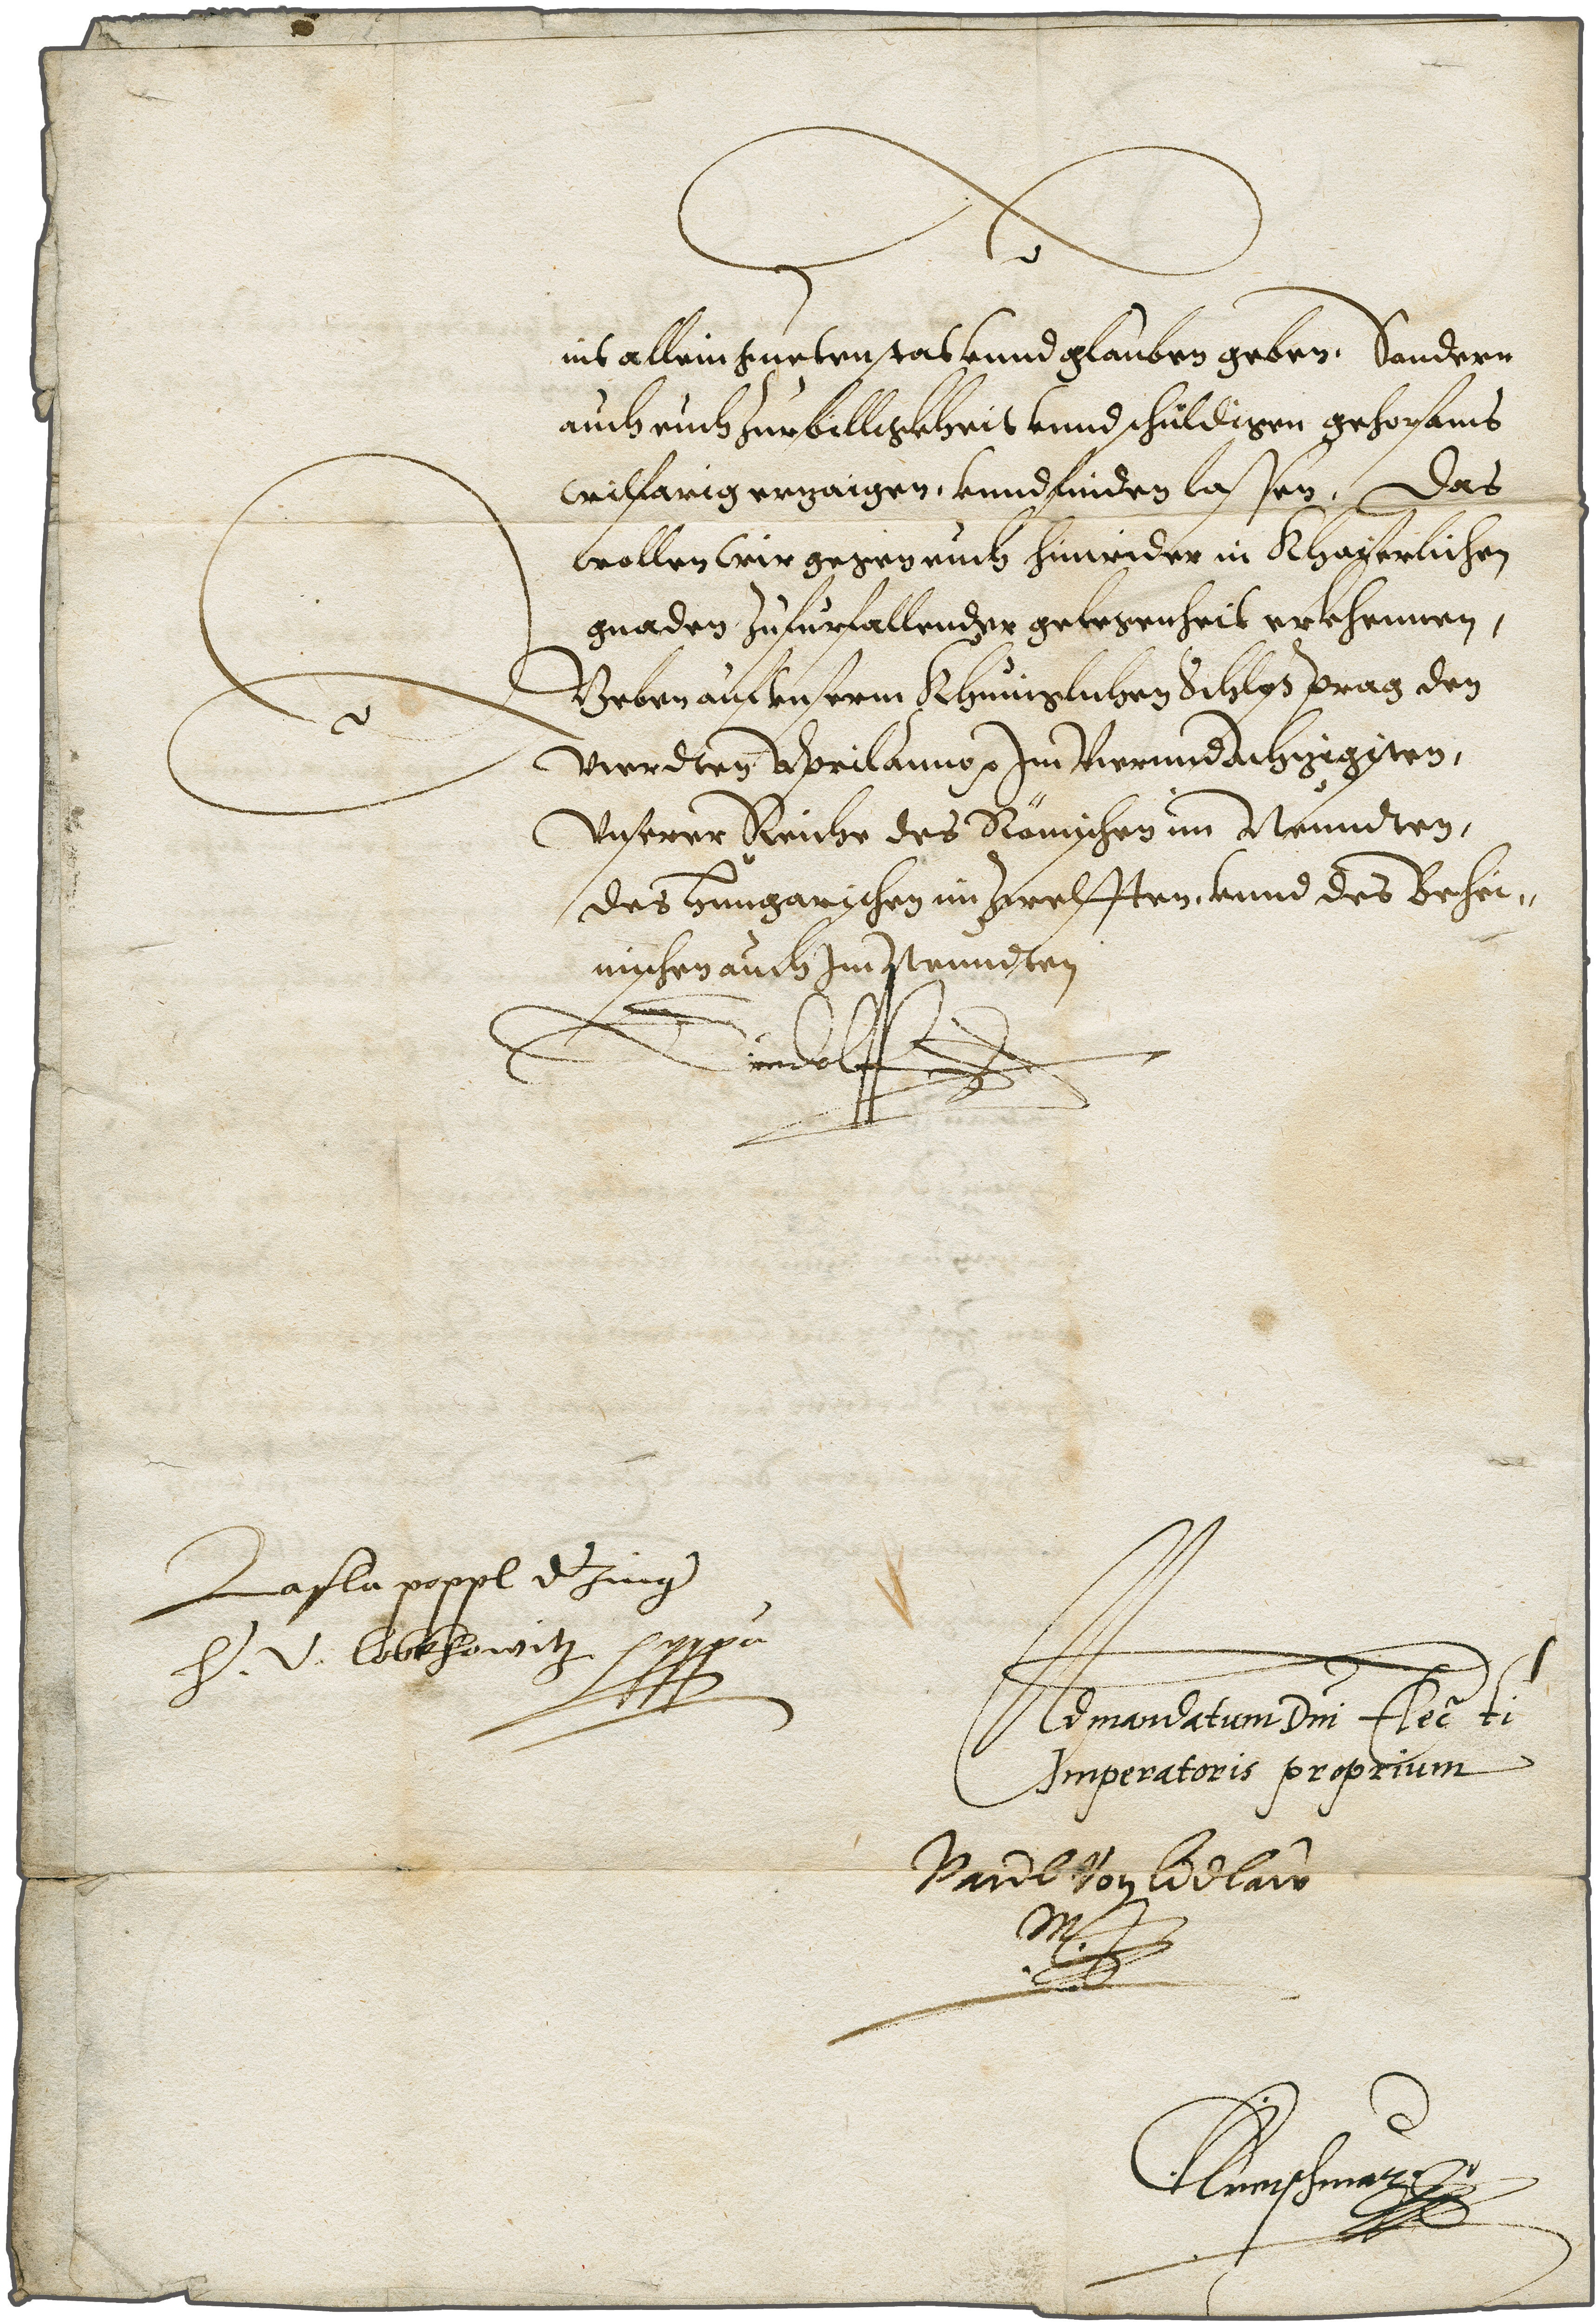 nit allein gueten stat vnnd glauben geben, Sondern
auch euch zur billigkheit vnnd schuldigen gehorsams
wilfarig erzaigen, vnnd finden lassen, Das
wollen wir gegen euch hinwider in Khayserlichen
gnaden zu furfallender gelegenheit erkhennen,
Geben auf vnserm Khuniglichen Schloß prag den
Vierdten April anno im Vierundachzigisten,
Vnserer Reiche des Römischen im Neundten,
des hungarischen im zwelfften, vnnd des Behei„
mischen auch Im Neundten
Rudolff
Lasla poppl d Jung
h. v. lobkhowitz
Ad mandatum Dni Elec ti
Imperatoris proprium
M.